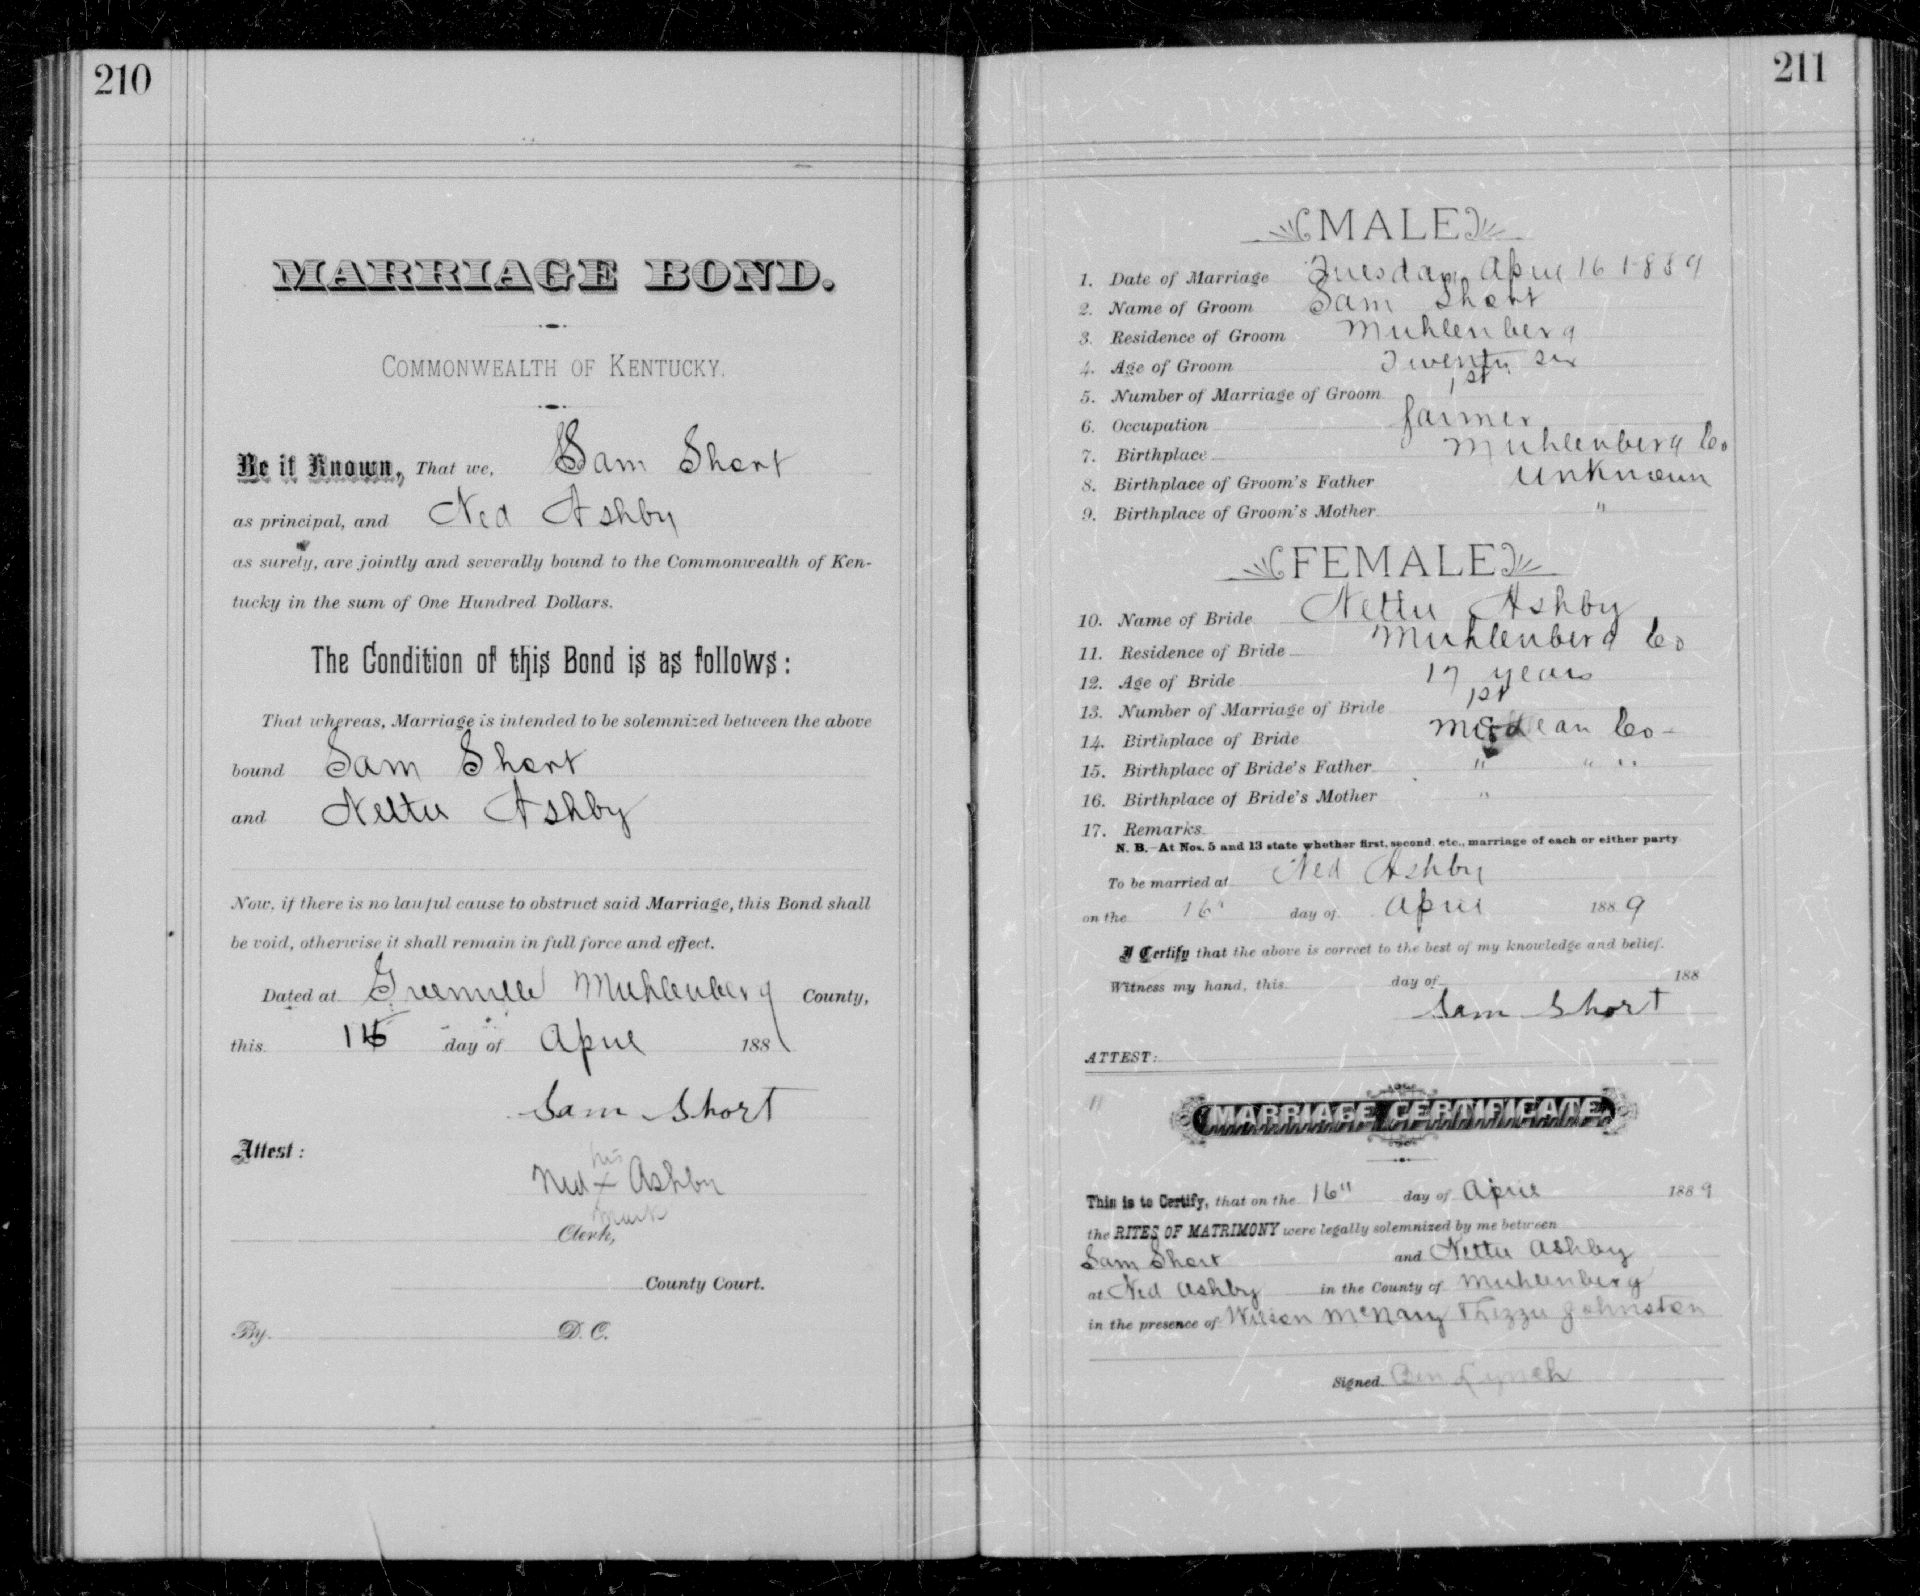 210
MARRIAGE BOND.
COMMONWEALTH OF KENTUCKY.
Be it Known, That we, Sam Short
as principal, and Ned Ashby
as surety, are jointly and severally bound to the Commonwealth of Ken-
tucky in the sum of One Hundred Dollars.
The Condition of this Bond is as follows:
That whereas, Marriage is intended to be solemnized between the above
bound Sam Short
and Nettie Ashby
Now, if there is no lawful cause to obstruct said Marriage, this Bond shall
be void, otherwise it shall remain in full force and effect.
Dated at Greenville Muhlenberg County,
this day of April 188
Sam Short
Attest:
his
Ned x Ashby
mark
Clerk,
County Court.
By D. C.
211
MALE
1. Date of Marriage Tuesday April 16 1889
2. Name of Groom Sam Short
3. Residence of Groom Muhlenberg
4. Age of Groom Twenty six
5. Number of Marriage of Groom 1st
6. Occupation farmer
7. Birthplace Muhlenberg Co
8. Birthplace of Groom's Father Unknown
9. Birthplace of Groom's Mother "
FEMALE
10. Name of Bride Nettie Ashby
11. Residence of Bride Muhlenberg Co
12. Age of Bride 17 years
13. Number of Marriage of Bride 1st
14. Birthplace of Bride McLean Co
15. Birthplace of Bride's Father " " "
16. Birthplace of Bride's Mother "
17. Remarks
N. B.—At Nos. 5 and 13 state whether first, second, etc., marriage of each or either party
To be married at Ned Ashby
on the 16" day of April 1889
I Certify that the above is correct to the best of my knowledge and belief.
Witness my hand, this day of 188
Sam Short
ATTEST:
MARRIAGE CERTIFICATE.
This is to Certify, that on the 16" day of April 1889
the RITES OF MATRIMONY were legally solemnized by me between
Sam Short and Nettie Ashby
at Ned Ashby in the County of Muhlenberg
in the presence of Wilson McNary Johnston
Signed Ben Lynch